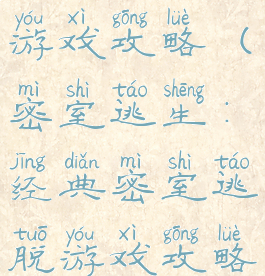 yóu xì gōng lüè
游戏攻略(
mì shì táo shēng
密室逃生:
jīng diǎn mì shì táo
经典密室逃
tuō yóu xì gōng lüè
脱游戏攻略